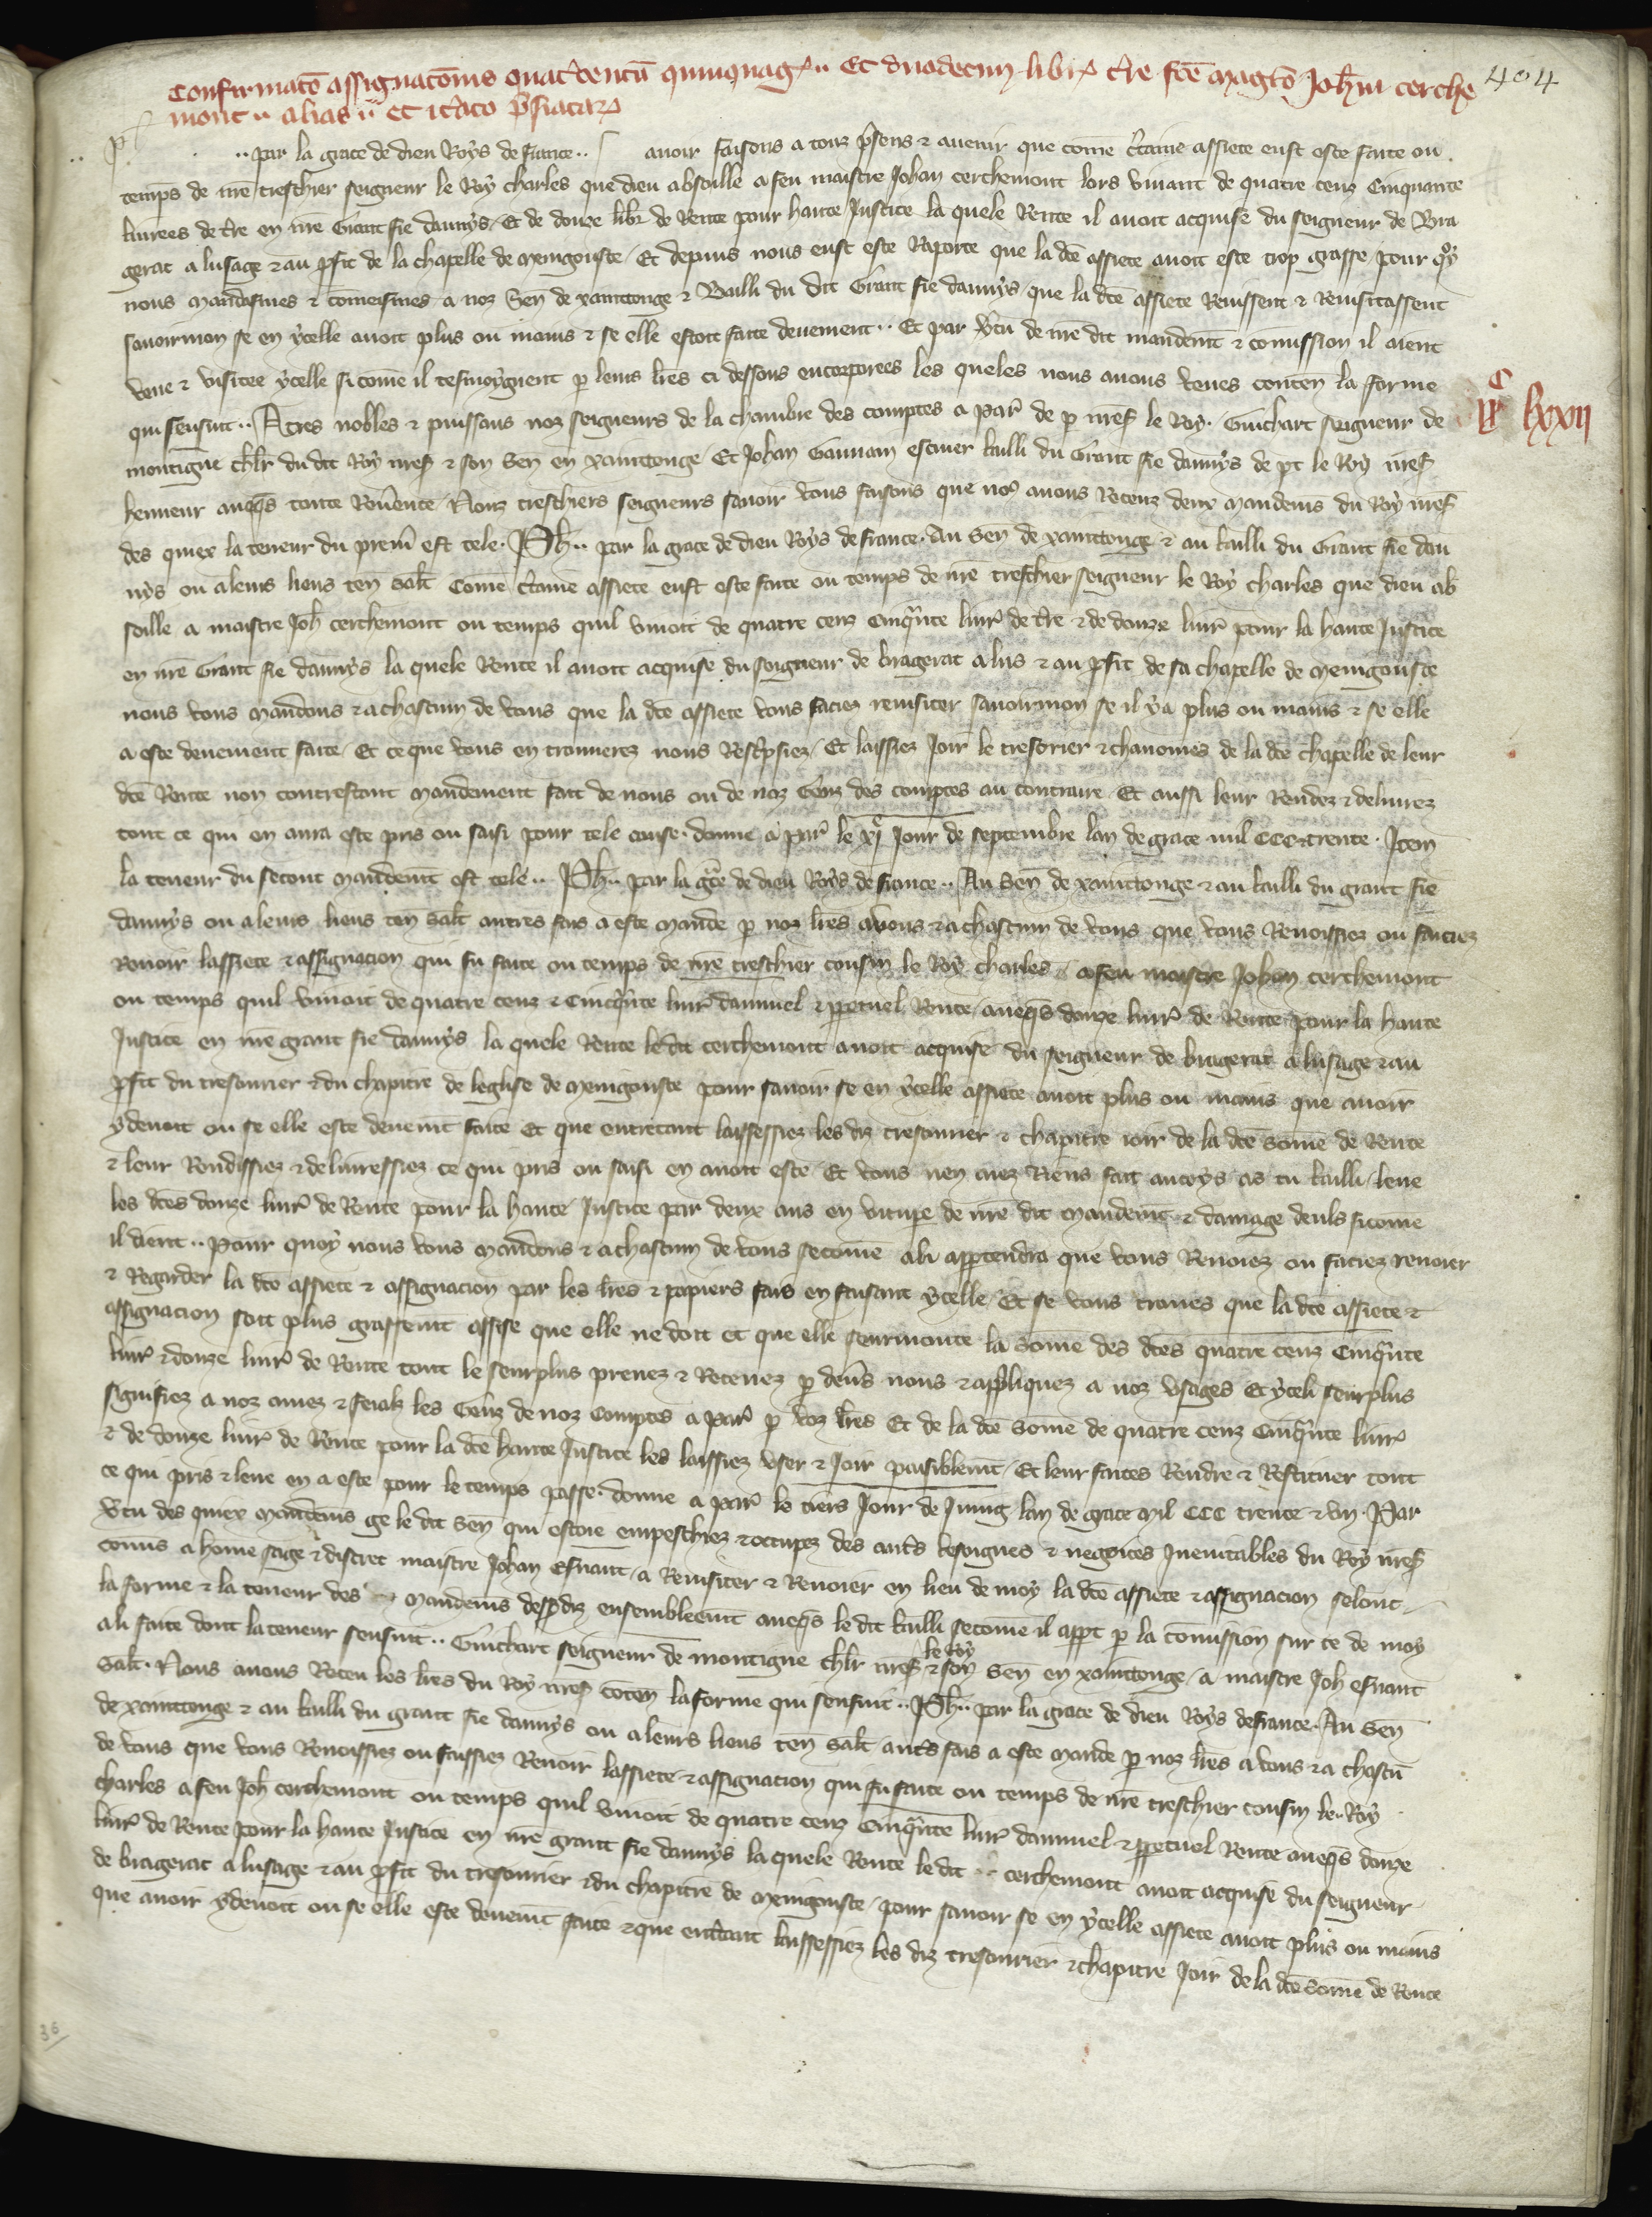 404
Confirmatō assignatōnis quat͛centū quinquag͛ .. Et duodecim libr͛ t͛re fcē magrō Joh̄ni cerche
mont .. alias .. et it͛ato p͛siatar͛
.. par la grace de dieu Roys de france .. avoir faisons a touz p͛sens & avenir que comē c͛taine assiete eust este faite ou
temps de nr̄e treschier seigneur le Roy charles que dieu absoille a feu maistre Johan cerchemont lors vivant de quatre cenz Cinquante
livrees de t͛re en nr̄e Grant fie daunys / Et de douze libr͛ de Rente pour haute Justice la quele Rente il avoit acquise du seigneur de Bra
gerat a lusage & au p͛fit de la chapelle de menigouste / Et depuis nous eust este Raporte que la dc̄e assiete avoit este trop grasse / pour qoy
nous mandasmes & cōmeismes a noz Sen̄ de xanttonge & Bailli du dit Grant fie daunys / que la dc̄e assiete Reuissent & Reuisitassent
savoirmon se en ycelle avoit plus ou mains & se elle estoit faite deuement .. Et par v͛tu de nr̄e dit mandem̄t & cōmission il aient
veue & visitee ycelle si come il tesmoygnent p leurs lr̄es ci dessous encorporees les queles nous avons veues conten̄ la forme
qui sensuit .. A tres nobles & puissans noz seigneurs de la chambre des comptes a Par͛ de p nr̄es͛ le Roy . Guichart seigneur de
ijc lxxij
montigne ch̄lr du dit Roy nr̄es͛ & son Sen̄ en xanttonge / Et Johan Gauuain escuier bailli du Grant fie daunys de pt le Roy nr̄es͛
henneur auq̄s toute Reu͛ence / Nouz treschiers seigneurs savoir vous faisons que no9 avons Receuz deux mandem̄s du Roy nr̄es͛
des quiex la teneur du prem͛ est tele . Ph̄ .. par la grace de dieu Roys de france . Au Sen̄ de xanttonge & au bailli du Grant fie dau
nys ou a leurs lieus ten̄ salt̄ Comē c͛taine assiete eust este faite ou temps de nr̄e treschier seigneur le Roy charles que dieu ab
soille a maistre Joh̄ cerchemont ou temps quil vivoit de quatre cenz cinq̄nte livr͛ de t͛re & de douze livr͛ pour la haute Justice
en nr̄e Grant fie daunys la quele Rente il avoit acquise du seigneur de bragerat a lus & au p͛fit de sa chapelle de menigouste
nous vous mandons & a chascun de vous que la dc̄e assiete vous faciez reuisiter savoirmon se il ya plus ou mains & se elle
a este deuement faite / Et ce que vous en trouverez nous Resc͛psiez / Et laissiez Joir le tresorier & chanoines de la dc̄e chapelle de leur
dc̄e Rente non contrestant mandement fait de nous ou de noz Genz des comptes au contraire / Et aussi leur Rendez & delivrez
tout ce qui en aura este pris ou saisi pour tele cause . donne a Par͛ le xie Jour de septembre lan de grace mil CCC & trente . Item
la teneur du secont mandem̄t est tele .. Ph̄ .. par la gr̄ce de dieu Roys de france .. Au Sen̄ de xanttonge & au bailli du grant fie
daunys ou a leurs lieus ten̄ salt̄ autres fais a este mande p noz lr̄es a vous & a chascun de vous que vous Revoissiez ou faciez
Revoir lassiete & assignacion qui fu faite ou temps de nr̄e treschier cousin le Roy charles / a feu maistre Johan cerchemont
ou temps quil vivoit de quatre cenz & cinq̄nte livr͛ dannuel & p͛petuel Rente / aueq̄s douze livr͛ de Rente pour la haute
Justice en nr̄e grant fie daunys la quele Rente le dit cerchemont avoit acquise du seigneur de bragerat a lusage & au
p͛fit du tresourier & du chapitre de leglise de menigouste pour savoir se en ycelle assiete avoit plus ou mains que avoir
ydevoit ou se elle este deuem̄t faite Et que entretant laissessiez les diz tresourier & chapitre ioir de la dc̄e Somē de Rente
& leur Rendissiez & delivressiez ce qui pris ou saisi en avoit este / Et vous nen avez Riens fait ancoys as tu bailli leue
les dc̄es douze livr͛ de Rente pour la haute Justice par deux ans en vitupe de nr̄e dit mandem̄t & damage deuls sicome
il dient .. Pour quoy nous vous mandons & a chascun de vous secomē a li app͛tendra que vous Revoiez ou faciez revoier
& Regarder la dc̄e assiete & assignacion par les lr̄es & papiers fais en faisant ycelle / Et se vous trouves que la dc̄e assiete &
assignacion soit plus grassem̄t assise que elle ne doit et que elle seurmonte la some des dc̄es quatre cenz Cinq̄nte
livr͛ & douze livr͛ de Rente tout le seurplus prenez & Retenez p dev͛s nous & appliquez a noz usages Et yceli seurplus
signifiez a noz amez & feialz les Genz de noz Comptes a Par͛ p voz lr̄es Et de la dc̄e Somē de quatre cenz Cinq̄nte livr͛
& de douze livr͛ de Rente pour la dc̄e haute Justice les laissiez user & Joir paisiblem̄t / Et leur faites Rendre & Restituer tout
ce qui pris & leue en a este pour le temps passe . donne a Par͛ le tiers Jour de Juing lan de grace mil CCC trente & un . Par
v͛tu des quiex mandem̄s ge le dit Sen̄ qui estoie empeschiez & occupez des aut͛s besoignes & negoices Inevitables du Roy nr̄es͛
cōmis a home sage & discret maistre Johan Esnaut / a Reuisiter & Revoier en lieu de moy la dc̄e assiete & assignacion selont
la forme & la teneur des mandem̄s desp͛diz ensembleem̄t aueq̄s le dit bailli secomē il appt p la cōmission sur ce de moy
a li faite dont la teneur sensuit .. Guichart seigneur de montigne ch̄lr nr̄es͛ le Roy & son Sen̄ en xanttonge / a maistre Joh̄ esnaut
Salt̄ . Nous avons Receu les lr̄es du Roy nr̄es͛ cōten̄ la forme qui sensuit .. Ph̄ .. par la grace de dieu Roys de france . Au Sen̄
de xanttonge & au bailli du grant fie daunys ou a leurs lieus ten̄ salt̄ aut͛s fais a este mande p noz lr̄es a vous & a chascū
de vous que vous Revoissiez ou faissiez Revoir lassiete & assignacion qui fu faite ou temps de nr̄e treschier cousin le .. Roy
charles a feu Joh̄ cerchemont ou temps quil vivoit de quatre cenz Cinq̄nte livr͛ dannuel & p͛petuel Rente aueq̄s douze
livr͛ de Rente pour la haute Justice en nr̄e grant fie daunys la quele Rente le dit .. cerchemont avoit acquise du seigneur
de bragerat a lusage & au p͛fit du tresourier & du chapitre de menigouste / pour savoir se en ycelle assiete avoit plus ou mains
que avoir ydevoit ou se elle este deuem̄t faite & que ent͛tant laissessiez les diz tresourier & chapitre Joir de la dc̄e Somē de Rente
36